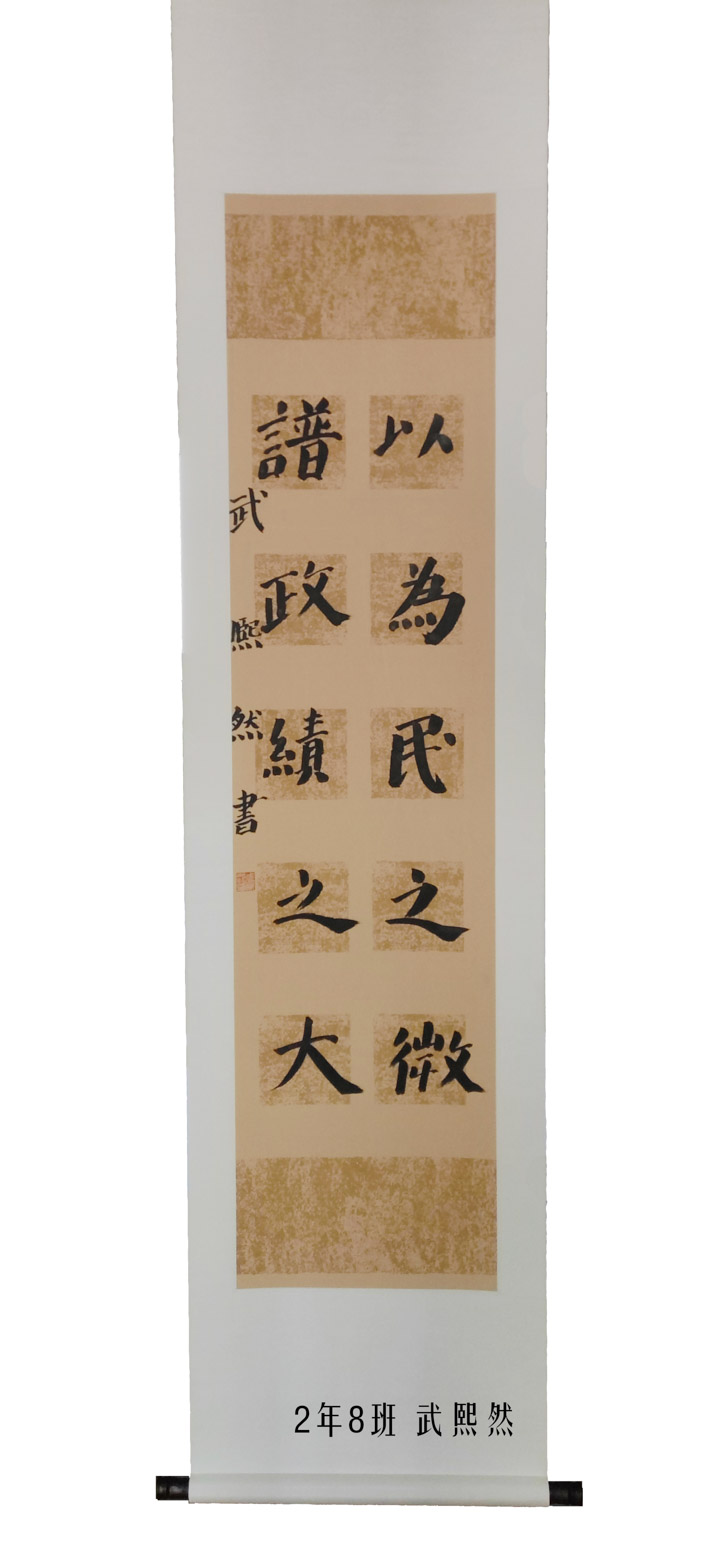 以為民之微
譜政績之大
武熙然書
2年8班 武熙然